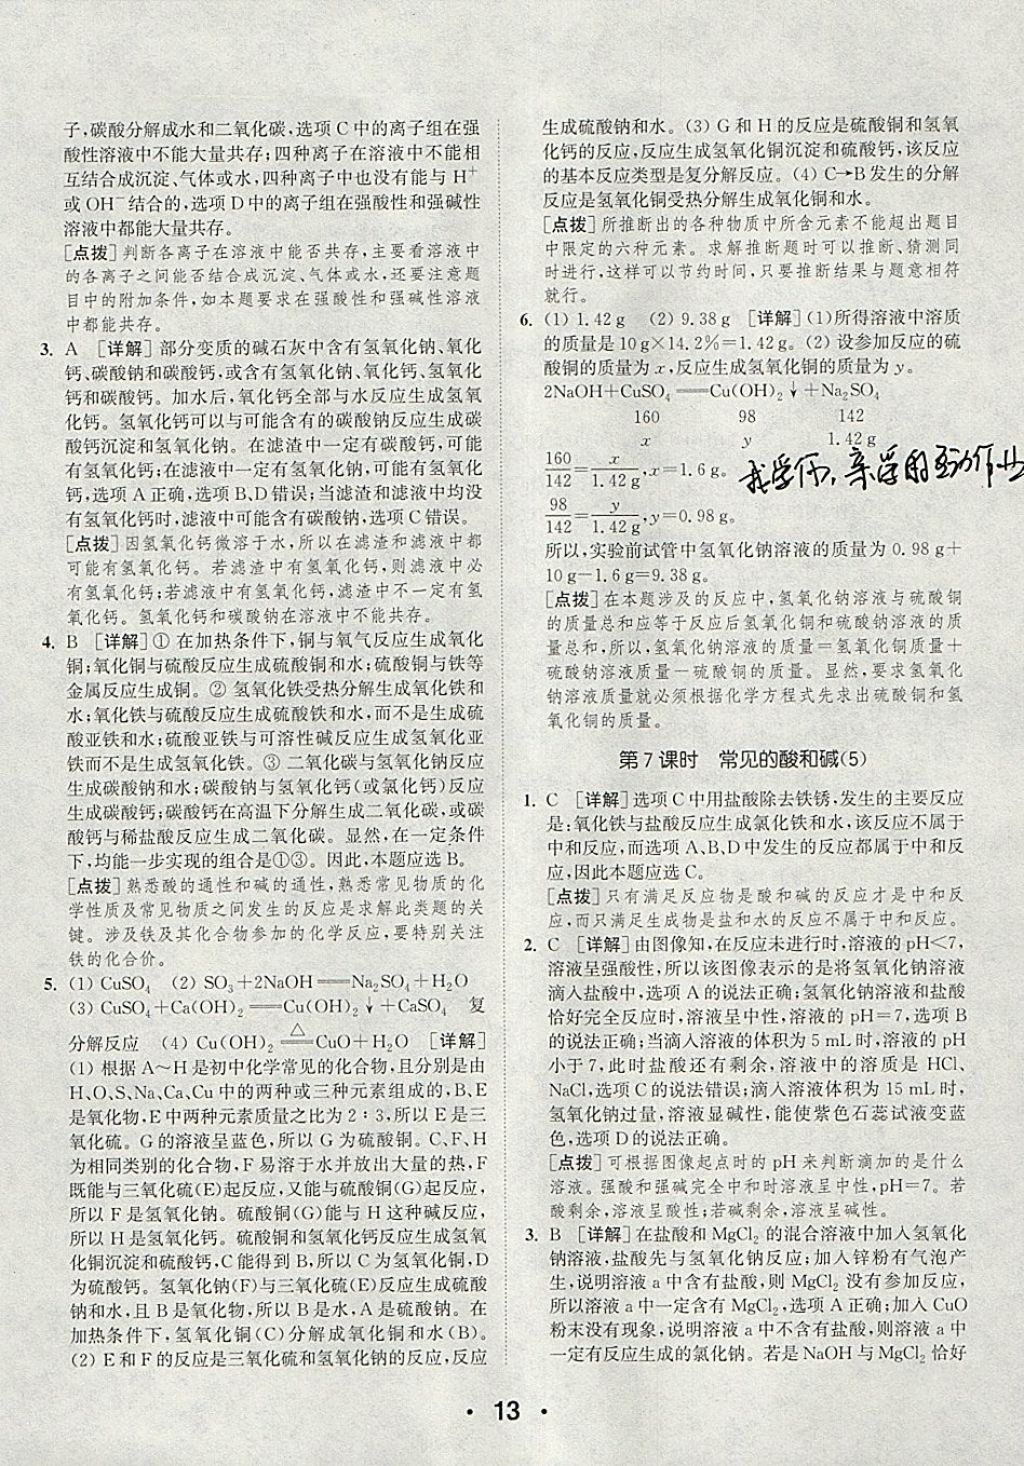 子,碳酸分解成水和二氧化碳,选项C中的离子组在强
酸性溶液中不能大量共存;四种离子在溶液中不能相
互结合成沉淀、气体或水,四种离子中也没有能与 H⁺
或 OH⁻结合的,选项D中的离子组在强酸性和强碱性
溶液中都能大量共存。
[点拨] 判断各离子在溶液中能否共存,主要看溶液中
的各离子之间能否结合成沉淀、气体或水,还要注意题
目中的附加条件,如本题要求在强酸性和强碱性溶液
中都能共存。
3. A [详解] 部分变质的碱石灰中含有氢氧化钠、氧化
钙、碳酸钠和碳酸钙,或含有氢氧化钠、氧化钙、氢氧化
钙和碳酸钙。加水后,氧化钙全部与水反应生成氢氧
化钙。氢氧化钙可以与可能含有的碳酸钠反应生成碳
酸钙沉淀和氢氧化钠。在滤渣中一定有碳酸钙,可能
有氢氧化钙;在滤液中一定有氢氧化钠,可能有氢氧化
钙,选项A正确,选项B、D错误;当滤渣和滤液中均没
有氢氧化钙时,滤液中可能含有碳酸钠,选项C错误。
[点拨] 因氢氧化钙微溶于水,所以在滤渣和滤液中都
可能有氢氧化钙。若滤渣中有氢氧化钙,则滤液中必
有氢氧化钙;若滤液中有氢氧化钙,滤渣中不一定有氢
氧化钙。氢氧化钙和碳酸钠在溶液中不能共存。
4. B [详解] ① 在加热条件下,铜与氧气反应生成氧化
铜;氧化铜与硫酸反应生成硫酸铜和水;硫酸铜与铁等
金属反应生成铜。② 氢氧化铁受热分解生成氧化铁和
水;氧化铁与硫酸反应生成硫酸铁和水,而不是生成硫
酸亚铁和水;硫酸亚铁与可溶性碱反应生成氢氧化亚
铁而不是生成氢氧化铁。③ 二氧化碳与氢氧化钠反应
生成碳酸钠和水;碳酸钠与氢氧化钙(或氯化钙)反应
生成碳酸钙;碳酸钙在高温下分解生成二氧化碳,或碳
酸钙与稀盐酸反应生成二氧化碳。显然,在一定条件
下,均能一步实现的组合是①③。因此,本题应选B。
[点拨] 熟悉酸的通性和碱的通性,熟悉常见物质的化
学性质及常见物质之间发生的反应是求解此类题的关
键。涉及铁及其化合物参加的化学反应,要特别关注
铁的化合价。
5. (1) CuSO₄ (2) SO₃+2NaOH══Na₂SO₄+H₂O
(3) CuSO₄+Ca(OH)₂══Cu(OH)₂↓+CaSO₄ 复
分解反应 (4) Cu(OH)₂ ══△ CuO+H₂O [详解]
(1) 根据A~H是初中化学常见的化合物,且分别是由
H、O、S、Na、Ca、Cu 中的两种或三种元素组成的,B、E
是氧化物,E中两种元素质量之比为2∶3,所以E是三
氧化硫。G的溶液呈蓝色,所以G为硫酸铜。C、F、H
为相同类别的化合物,F易溶于水并放出大量的热,F
既能与三氧化硫(E)起反应,又能与硫酸铜(G)起反应,
所以F是氢氧化钠。硫酸铜(G)能与H这种碱反应,
所以H是氢氧化钙。硫酸铜和氢氧化钙反应生成氢氧
化铜沉淀和硫酸钙,C能得到B,所以C为氢氧化铜,D
为硫酸钙。氢氧化钠(F)与三氧化硫(E)反应生成硫酸
钠和水,且B是氧化物,所以B是水,A是硫酸钠。在
加热条件下,氢氧化铜(C)分解成氧化铜和水(B)。
(2) E和F的反应是三氧化硫和氢氧化钠的反应,反应
生成硫酸钠和水。(3) G和H的反应是硫酸铜和氢氧
化钙的反应,反应生成氢氧化铜沉淀和硫酸钙,该反应
的基本反应类型是复分解反应。(4) C→B发生的分解
反应是氢氧化铜受热分解生成氧化铜和水。
[点拨] 所推断出的各种物质中所含元素不能超出题目
中限定的六种元素。求解推断题时可以推断、猜测同
时进行,这样可以节约时间,只要推断结果与题意相符
就行。
6. (1) 1.42 g (2) 9.38 g [详解] (1)所得溶液中溶质
的质量是 10 g×14.2%=1.42 g。(2) 设参加反应的硫
酸铜的质量为x,反应生成氢氧化铜的质量为y。
2NaOH+CuSO₄══Cu(OH)₂↓+Na₂SO₄
160 98 142
x y 1.42 g
160/142=x/1.42 g,x=1.6 g。
98/142=y/1.42 g,y=0.98 g。
所以,实验前试管中氢氧化钠溶液的质量为 0.98 g+
10 g-1.6 g=9.38 g。
[点拨] 在本题涉及的反应中,氢氧化钠溶液与硫酸铜
的质量总和应等于反应后氢氧化铜和硫酸钠溶液的质
量总和,所以,氢氧化钠溶液的质量=氢氧化铜质量+
硫酸钠溶液质量-硫酸铜的质量。显然,要求氢氧化
钠溶液质量就必须根据化学方程式先求出硫酸铜和氢
氧化铜的质量。
第7课时 常见的酸和碱(5)
1. C [详解] 选项C中用盐酸除去铁锈,发生的主要反应
是:氧化铁与盐酸反应生成氯化铁和水,该反应不属于
中和反应,而选项A、B、D中发生的反应都属于中和反
应,因此本题应选C。
[点拨] 只有满足反应物是酸和碱的反应才是中和反
应,而只满足生成物是盐和水的反应不属于中和反应。
2. C [详解] 由图像知,在反应未进行时,溶液的 pH<7,
溶液呈强酸性,所以该图像表示的是将氢氧化钠溶液
滴入盐酸中,选项A的说法正确;氢氧化钠溶液和盐酸
恰好完全反应时,溶液呈中性,溶液的 pH=7,选项B
的说法正确;当滴入溶液的体积为 5 mL 时,溶液的 pH
小于7,此时盐酸还有剩余,溶液中的溶质是 HCl、
NaCl,选项C的说法错误;滴入溶液体积为 15 mL 时,
氢氧化钠过量,溶液显碱性,能使紫色石蕊试液变蓝
色,选项D的说法正确。
[点拨] 可根据图像起点时的 pH 来判断滴加的是什么
溶液。强酸和强碱完全中和时溶液呈中性,pH=7。若
酸剩余,溶液呈酸性;若碱剩余,溶液呈碱性。
3. B [详解] 在盐酸和 MgCl₂ 的混合溶液中加入氢氧化
钠溶液,盐酸先与氢氧化钠反应;加入锌粉有气泡产
生,说明溶液a中含有盐酸,则 MgCl₂ 没有参加反应,
所以溶液a中一定含有 MgCl₂,选项A正确;加入 CuO
粉末没有现象,说明溶液a中不含有盐酸,则溶液a中
一定有反应生成的氯化钠。若是 NaOH 与 MgCl₂ 恰好
· 13 ·